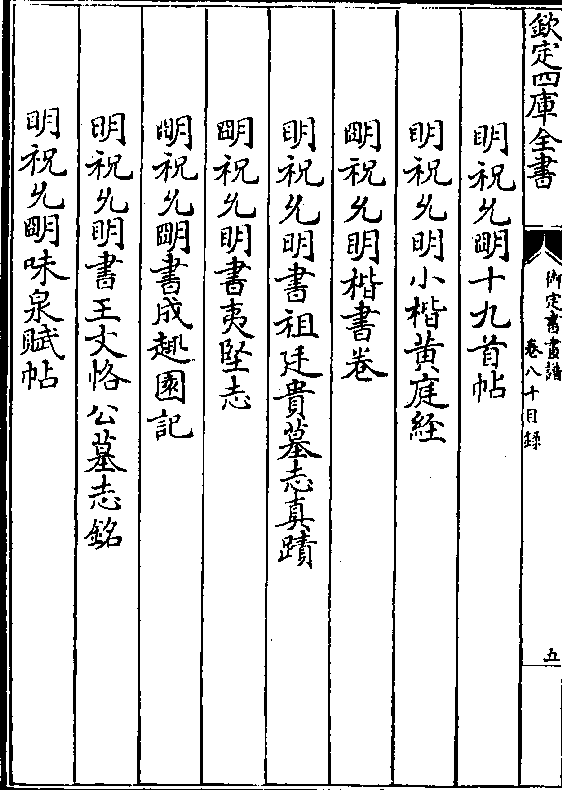 欽定四庫全書
御定書畫譜
卷八十目錄
五
明祝允明十九首帖
明祝允明小楷黃庭經
明祝允明楷書卷
明祝允明書祖廷貴墓志真蹟
明祝允明書夷堅志
明祝允明書成趣園記
明祝允明書王文恪公墓志銘
明祝允明味泉賦帖